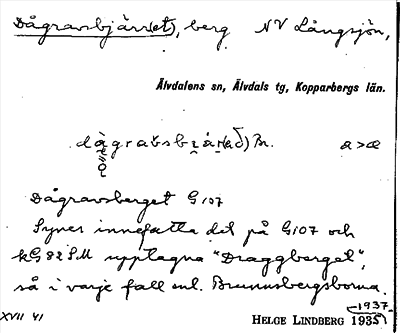 Dågravsbjärr(et), berg NV Långsjön,
Älvdalens sn, Älvdals tg, Kopparbergs län.
a>æ
Dågravsberget G107
Synes innefatta det på G107 och
kG 82 SM upptagna "Draggberget",
så i varje fall enl. Brunnsbergsborna.
-1937-
XVII 41
HELGE LINDBERG 1935